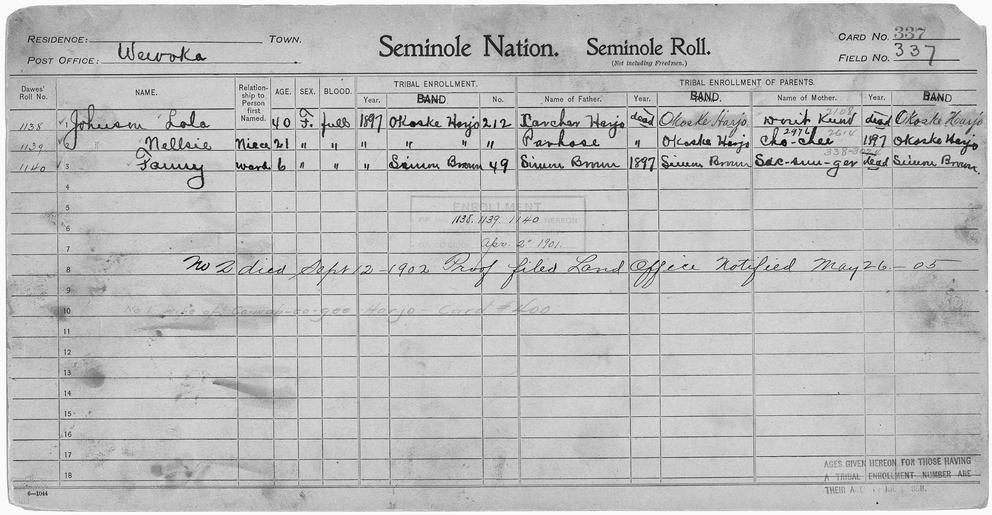 RESIDENCE: TOWN. Seminole Nation. Seminole Roll. CARD NO. 337
POST OFFICE: Wewoka (Not including Freedmen.) FIELD NO. 337
Dawes' Roll No. NAME. Relationship to Person first Named. AGE. SEX. BLOOD. TRIBAL ENROLLMENT. TRIBAL ENROLLMENT OF PARENTS.
Year. BAND No. Name of Father. Year. BAND Name of Mother. Year. BAND
1138 1 Johnson Lola 40 F. full 1897 Okoske Harjo 212 Larcher Harjo dead Okoske Harjo Wont Kund dead Okoske Harjo
1139 2 " Nellsie Niece 21 " " " " " " Parhose " Okoske Harjo Cho-chee 1897 Okoske Harjo
1140 3 Fanny ward 6 " " " Simon Brown 49 Simon Brown 1897 Simon Brown Sac-sun-ger dead Simon Brown.
4
5 ENROLLMENT
6 1138. 1139. 1140 HEREON
7 Apr. 2" 1901.
8 No 2 died Sept 12 - 1902 Proof filed Land Office Notified May 26 - 05
9
10 No 1 wife of Harjo - Card #400
11
12
13
14
15
16
17
18
AGES GIVEN HEREON FOR THOSE HAVING
A TRIBAL ENROLLMENT NUMBER ARE
THEIR
6-1044